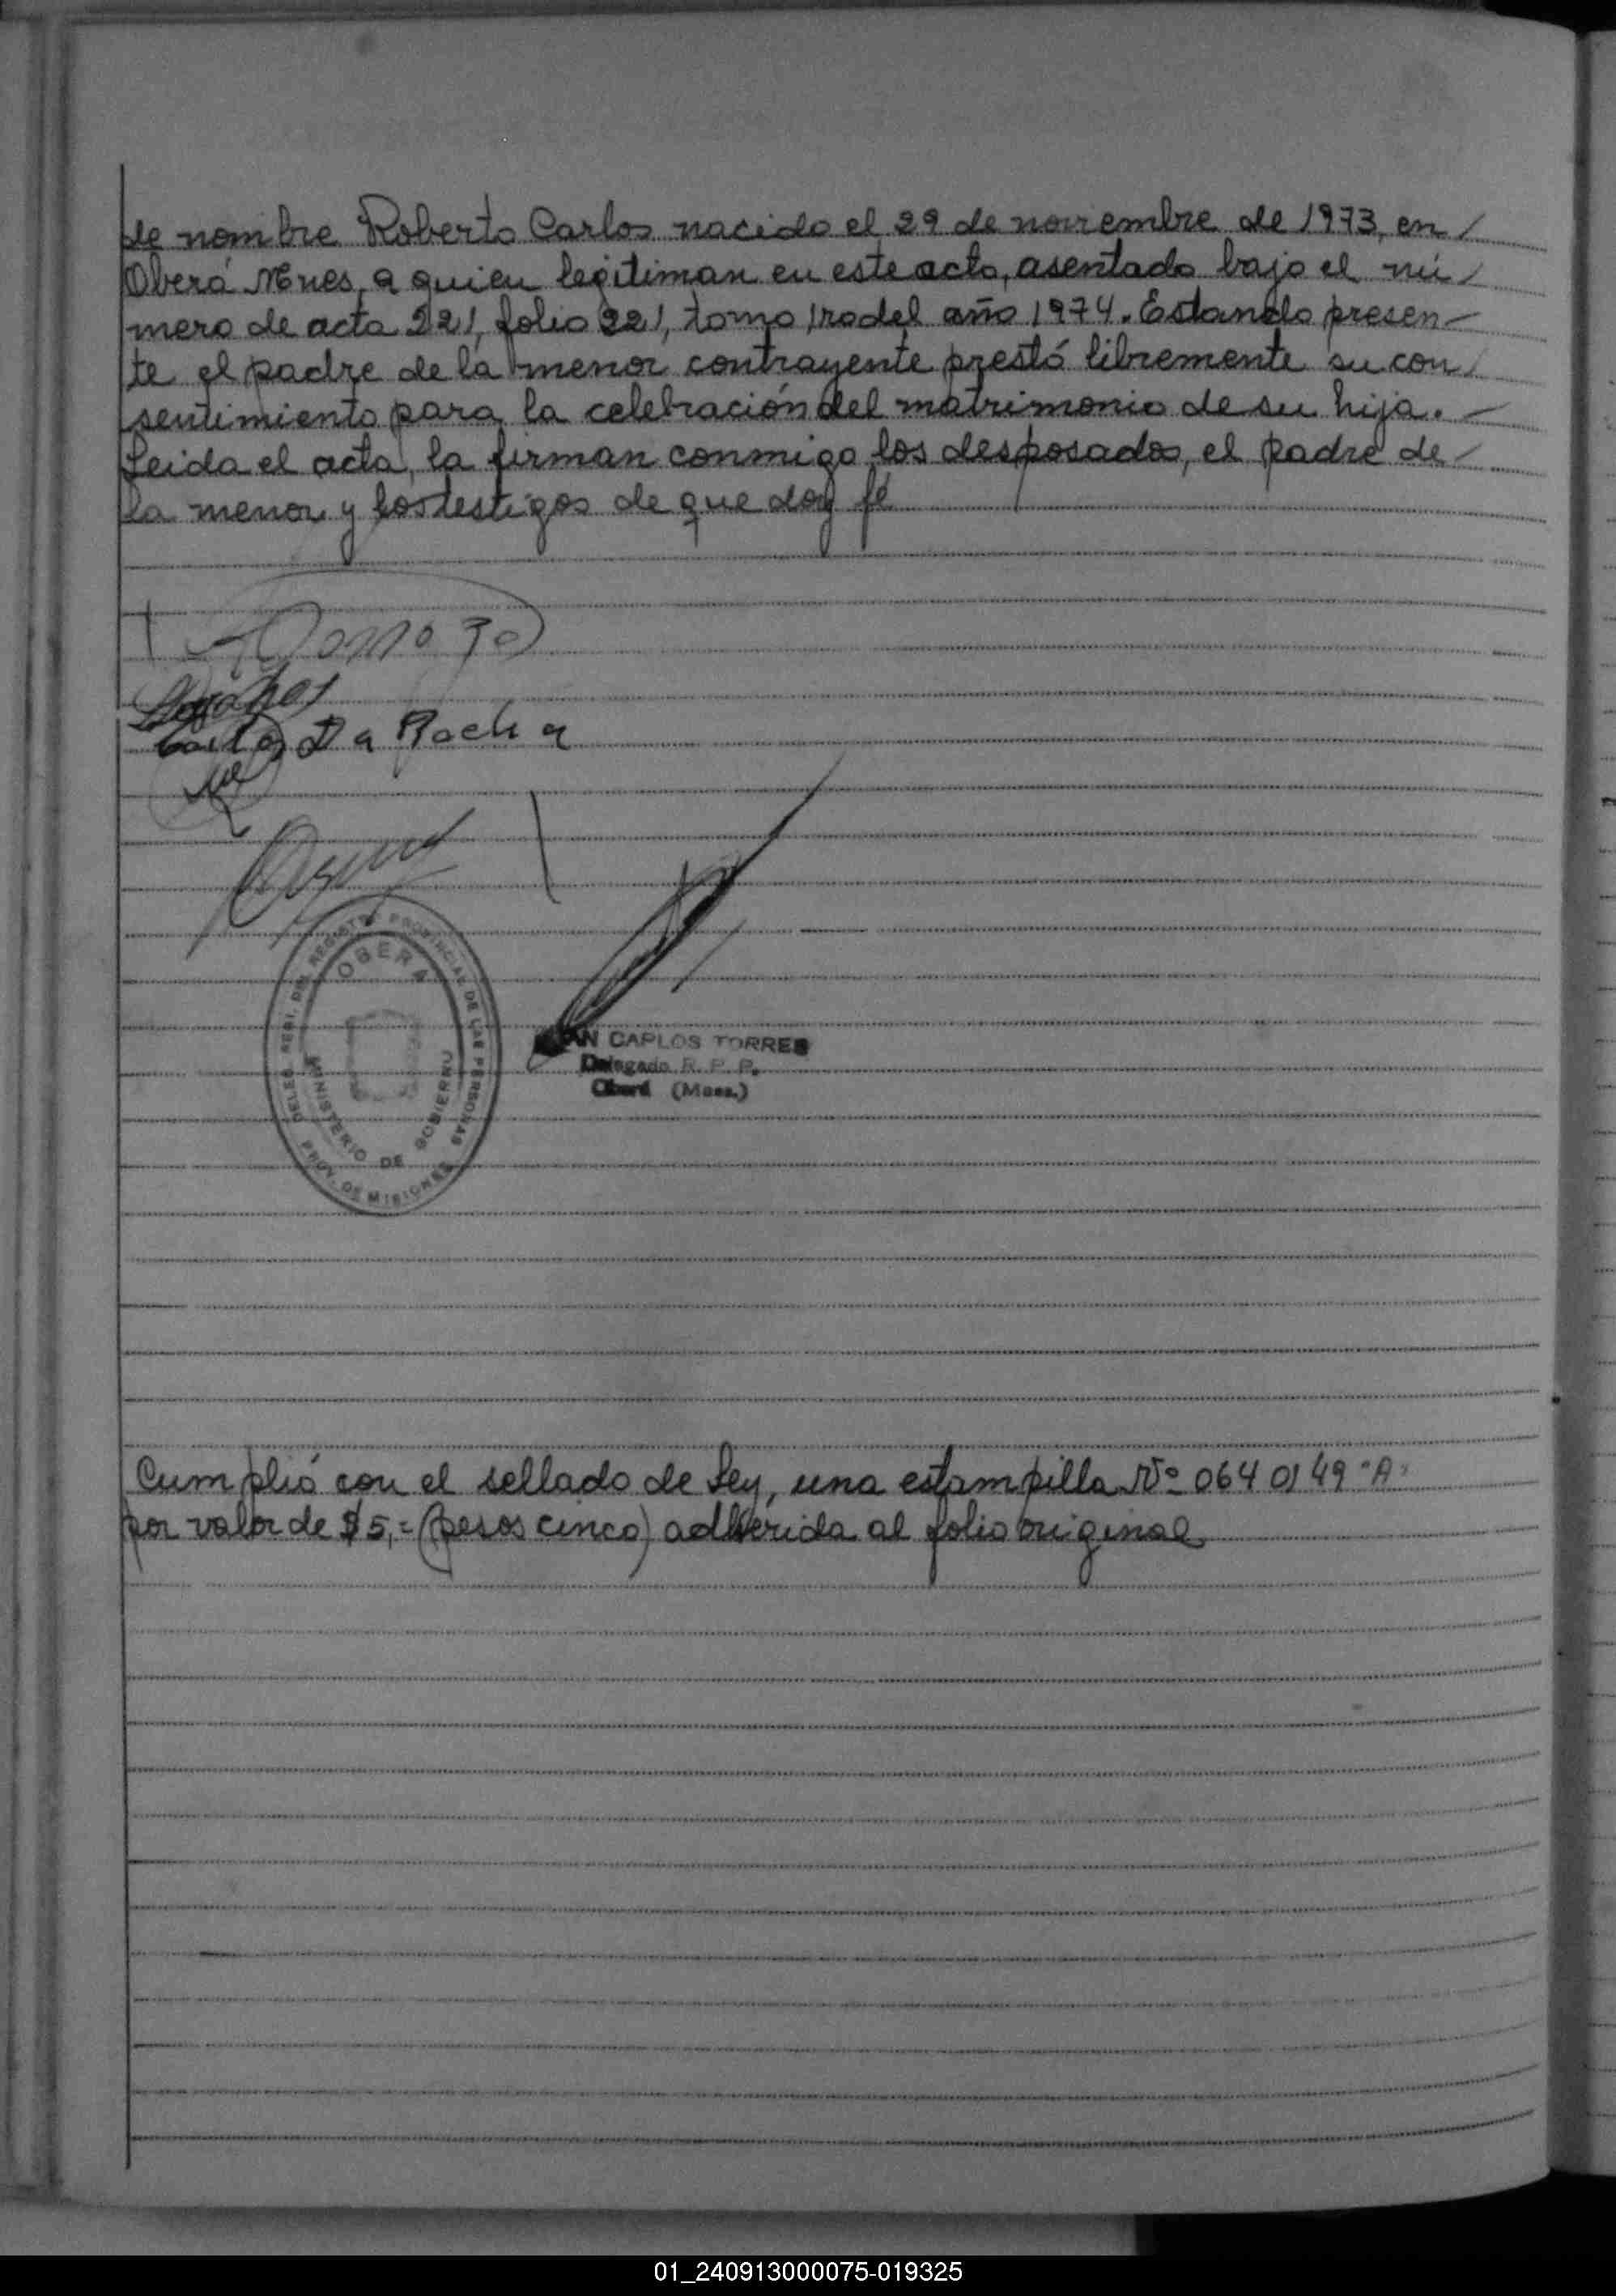 de nombre Roberto Carlos nacido el 29 de noviembre de 1973, en /
Oberá Mnes, a quien legitiman en este acto, asentado bajo el nú /
mero de acta 221, folio 221, tomo 1ro del año 1974. Estando presen-
te el padre de la menor contrayente prestó libremente su con /
sentimiento para la celebración del matrimonio de su hija. -
Leida el acta, la firman conmigo los desposados, el padre de -
la menor y los testigos de que doy fé
Da Rocha
DELEG. DEL REGISTRO PROVINCIAL DE LAS PERSONAS
OBERA
MINISTERIO DE GOBIERNO
PROV. DE MISIONES
CARLOS TORRES
Delegado R. P. P.
Oberá (Mnes.)
Cumplió con el sellado de Ley, una estampilla Nº 0640149 "A"
por valor de $5,= (pesos cinco) adherida al folio original
01_240913000075-019325